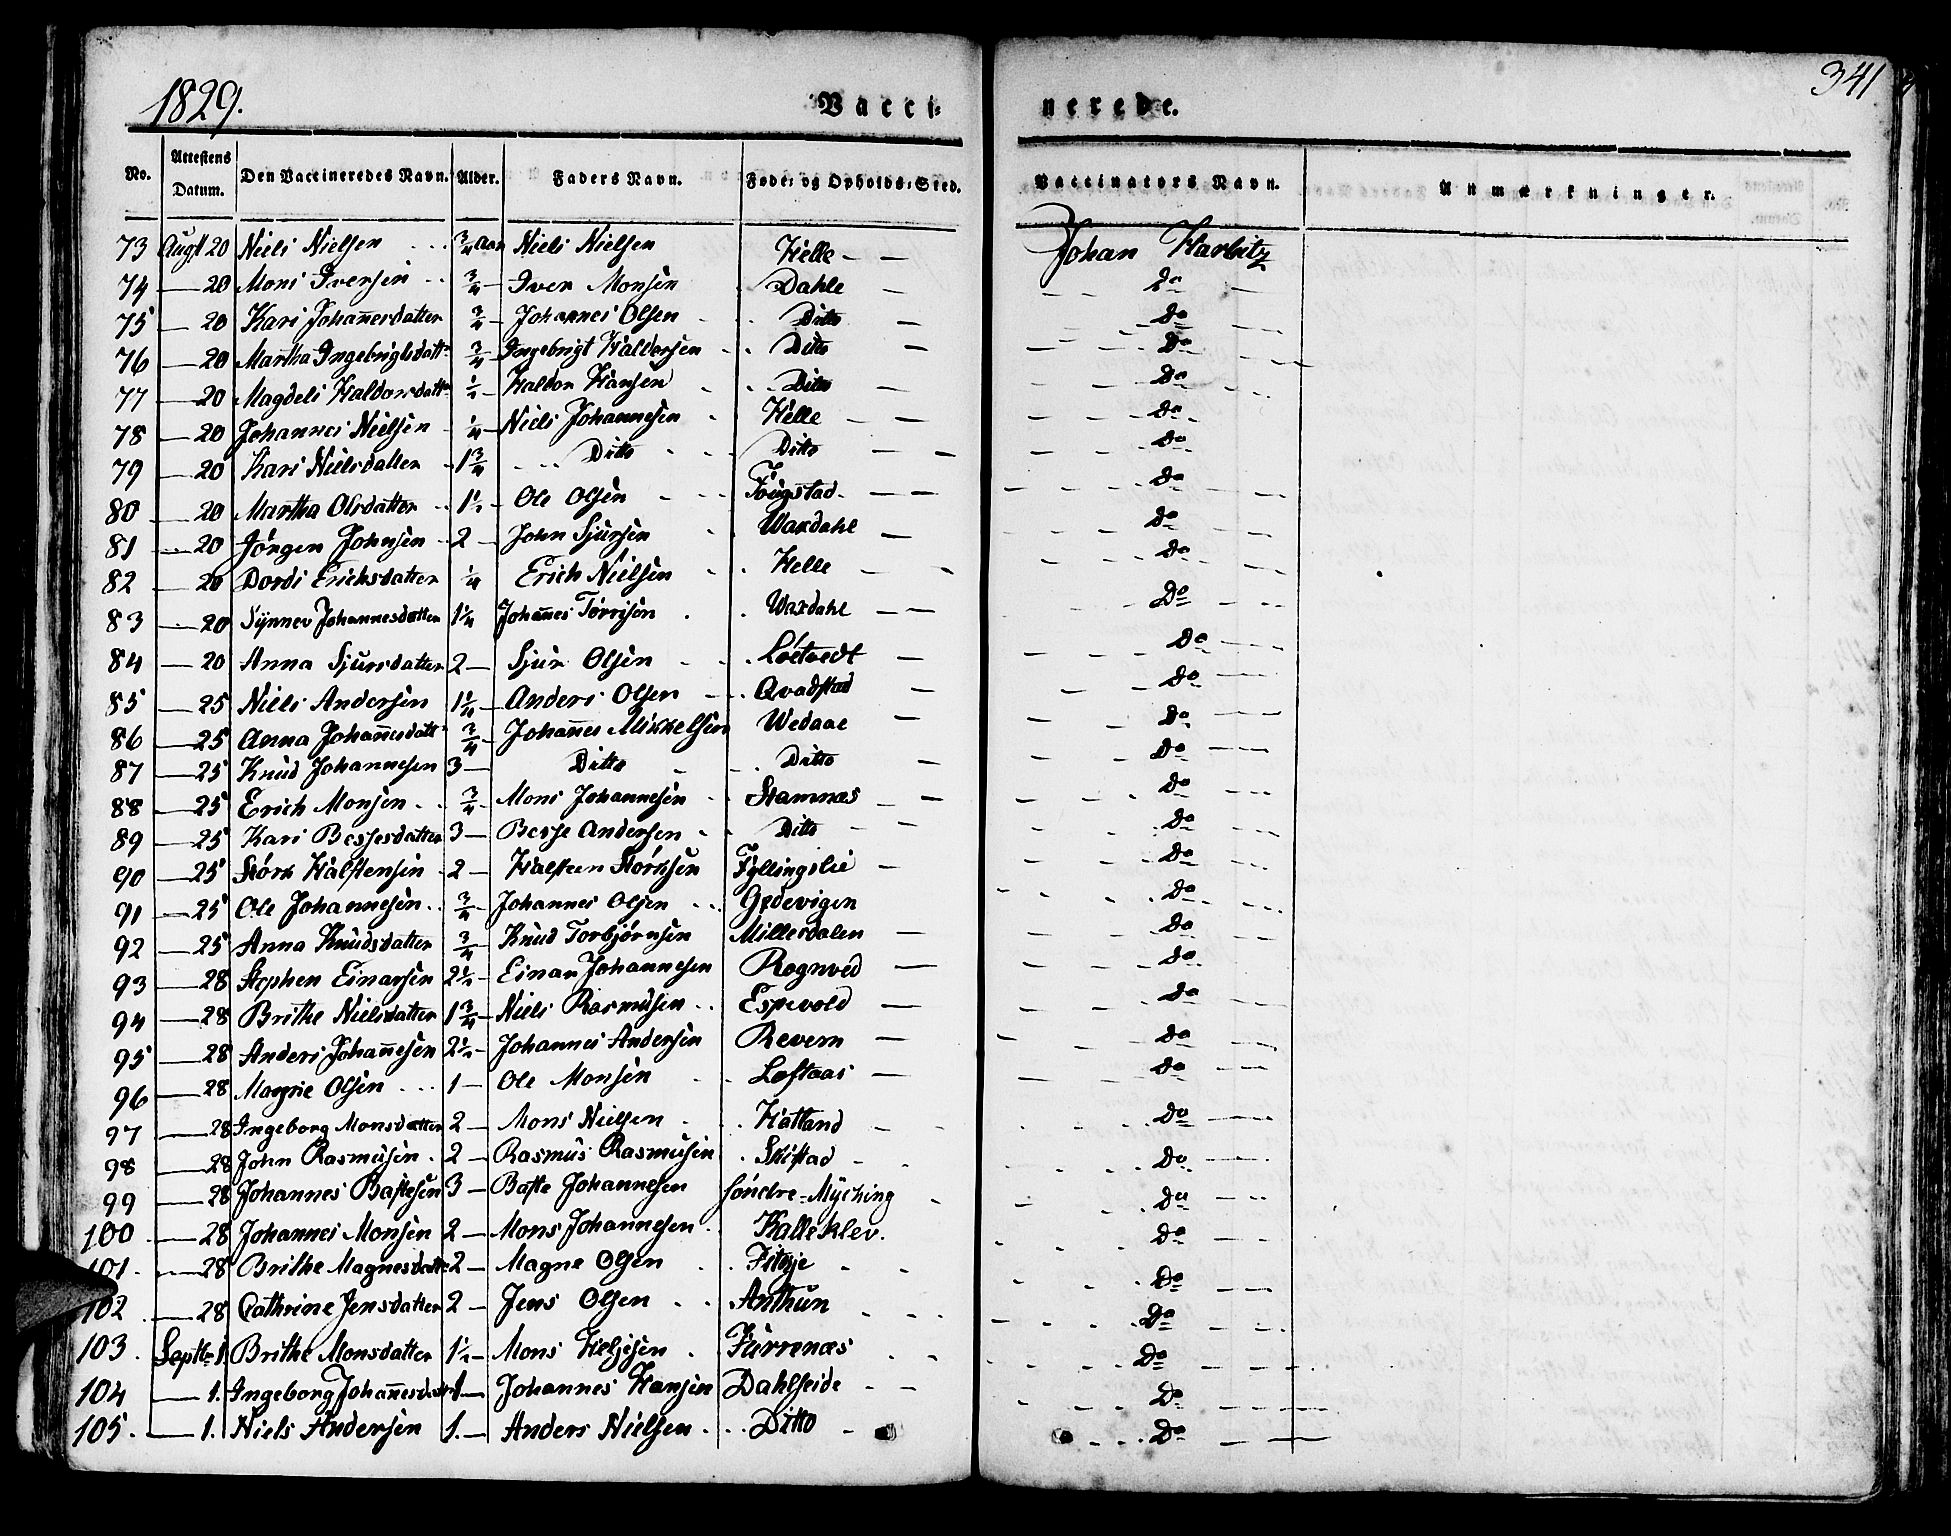 1829.
Vacci: nerede.
341
No. Attestens Datum. Den Vaccineredes Navn. Alder. Faders Navn. Føde- og Opholds-Sted. Vaccinators Navn. Anmærkninger.
73 Augt 20 Niels Nielsen 3/4 Aar Niels Nielsen Helle Johan Harbitz
74 — 20 Mons Iversen 3/4 — Iver Monsen Dahle do
75 — 20 Kari Johan̄esdatter 3/4 — Johannes Olsen Ditto do
76 — 20 Martha Ingebrigtsdattr 3/4 — Ingebrigt Haldorsen Ditto do
77 — 20 Magdeli Haldorsdattr 1/2 — Haldor Hansen Ditto do
78 — 20 Johannes Nielsen 1/4 — Niels Johannesen Helle do
79 — 20 Kari Nielsdatter 1 3/4 Ditto Ditto do
80 — 20 Martha Olsdatter 1 1/2 — Ole Olsen Fougstad do
81 — 20 Jörgen Johnsen 2 — John Sjursen Waxdahl do
82 — 20 Dordi Erichsdatter 1/4 Erich Nielsen Helle do
83 — 20 Synnev Johannesdatter 1 1/4 Johan̄es Torrisen Waxdahl Do
84 — 20 Anna Sjursdatter 2 — Sjur Olsen Loetvedt Do
85 — 25 Niels Andersen 1 1/4 — Anders Olsen Qvadstad do
86 — 25 Anna Johan̄esdattr 3/4 — Johan̄es Mikkelsen Wedaae do
87 — 25 Knud Johannesen 3 — Ditto Ditto do
88 — 25 Erich Monsen 3/4 — Mons Johannesen Stamnæs do
89 — 25 Kari Bessesdatter 3 — Besse Andersen Ditto do
90 — 25 Störk Halstensen 2 — Halsteen Störksen Fyllingslie do
91 — 25 Ole Johannesen 3/4 — Johannes Olsen Gjedevigen do
92 — 25 Anna Knudsdatter 3/4 — Knud Torbjørnsen Millerdalen do
93 — 28 Stephen Einarsen 2 1/2 — Einar Johannesen Rognved do
94 — 28 Brithe Nielsdatter 1 3/4 — Niels Rasmusen Espevold do
95 — 28 Anders Johan̄esen 2 1/2 — Johannes Andersen Revem do
96 — 28 Magne Olsen 1 — Ole Monsen Loftaas do
97 — 28 Ingeborg Monsdatter 2 — Mons Nielsen Hatland do
98 — 28 John Rasmusen 2 — Rasmus Rasmusen Skistad do
99 — 28 Johannes Bastesen 3 — Baste Johannesen Söndre-Myching do
100 — 28 Johannes Monsen 2 — Mons Johannesen Kalleklev. do
101 — 28 Brithe Magnesdatter 2 — Magne Olsen Fitje do
102 — 28 Cathrine Jensdatter 2 — Jens Olsen Anthun Do
103 Septbr 1. Brithe Monsdatter 1 1/2 — Mons Heljesen Furrenæs Do
104 — 1. Ingeborg Johan̄esdatter 1 — Johannes Hansen Dahlseide Do
105. — 1. Niels Andersen 1. — Anders Nielsen Ditto Do